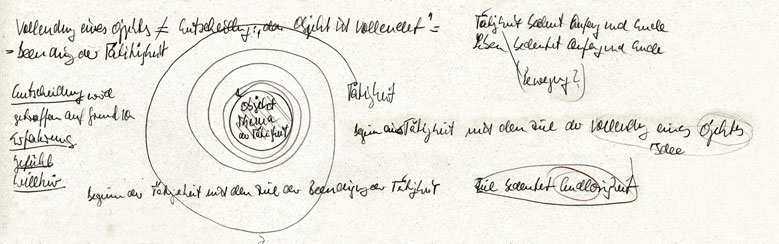 Vollendung eines Objektes ≠ Entscheidung: "das Objekt ist vollendet" =
= Beendung der Tätigkeit
Tätigkeit bedeutet Anfang und Ende
bedeutet Anfang und Ende
(Bewegung?)
Entscheidung wird
getroffen auf Grund von
Erfahrung
Gefühl
Willkür
Objekt
Thema
der Tätigkeit
Tätigkeit
Beginn einer Tätigkeit mit dem Ziel der Vollendung eines Objektes
Idee
Beginn der Tätigkeit mit dem Ziel der Beendigung der Tätigkeit
Ziel bedeutet Endlosigkeit